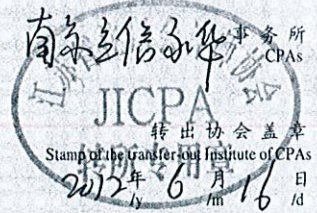 南京立信永华 事务所
CPAs
江苏 协会
JICPA
转出协会盖章
Stamp of the transfer-out Institute of CPAs
转所专用章
2012年 6 月 16 日
/y /m /d